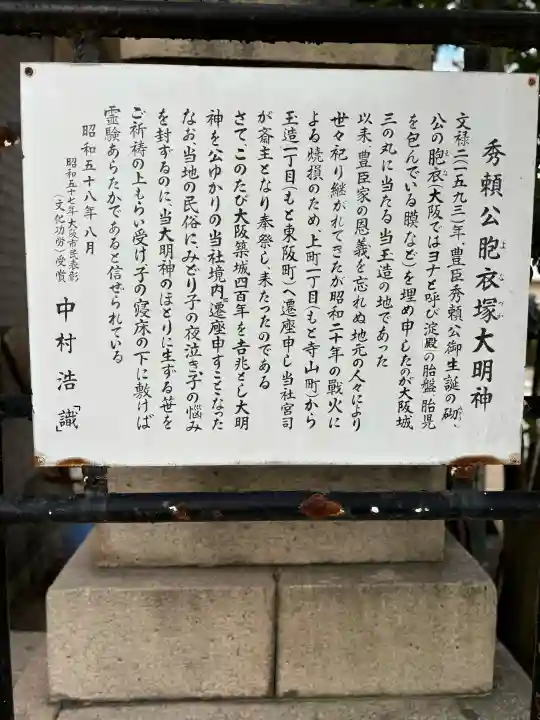 秀頼公胞衣塚大明神
文禄二(一五九三)年、豊臣秀頼公御生誕の砌、
公の胞衣(大阪ではヨナと呼び淀殿の胎盤、胎児
を包んでいる膜など)を埋め申したのが大阪城
三の丸に当たる当玉造の地であった
以来、豊臣家の恩義を忘れぬ地元の人々により
世々祀り継がれてきたが昭和二十年の戦火に
よる焼損のため、上町一丁目(もと寺山町)から
玉造一丁目(もと東阪町)へ遷座申し当社宮司
が斎主となり奉祭し、来たったのである
さてこのたび大阪築城四百年を吉兆とし大明
神を公ゆかりの当社境内に遷座申すこととなった
なお当地の民俗に、みどり子の夜泣き、子の悩み
を封ずるのに、当大明神のほとりに生ずる笹を
ご祈祷の上もらい受け子の寝床の下に敷けば
霊験あらたかであると信ぜられている
昭和五十八年八月
昭和五十七年大阪市民表彰
(文化功労)受賞
中村浩「識」